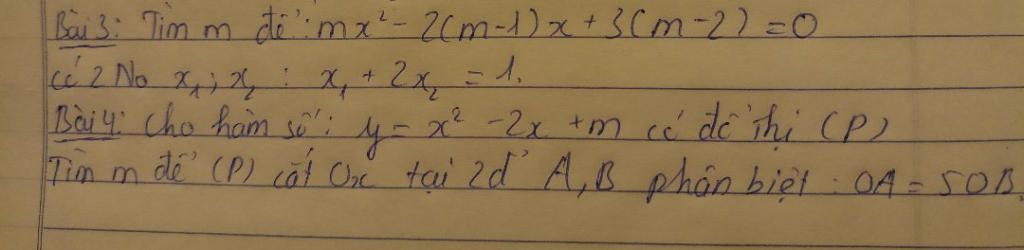 Bài 3: Tìm m để: mx² - 2(m-1)x + 3(m-2) = 0
có 2 No x₁; x₂ : x₁ + 2x₂ = 1.
Bài 4: Cho hàm số: y = x² - 2x + m có đồ thị (P)
Tìm m để (P) cắt Ox tại 2đ' A, B phân biệt : OA = 5OB.